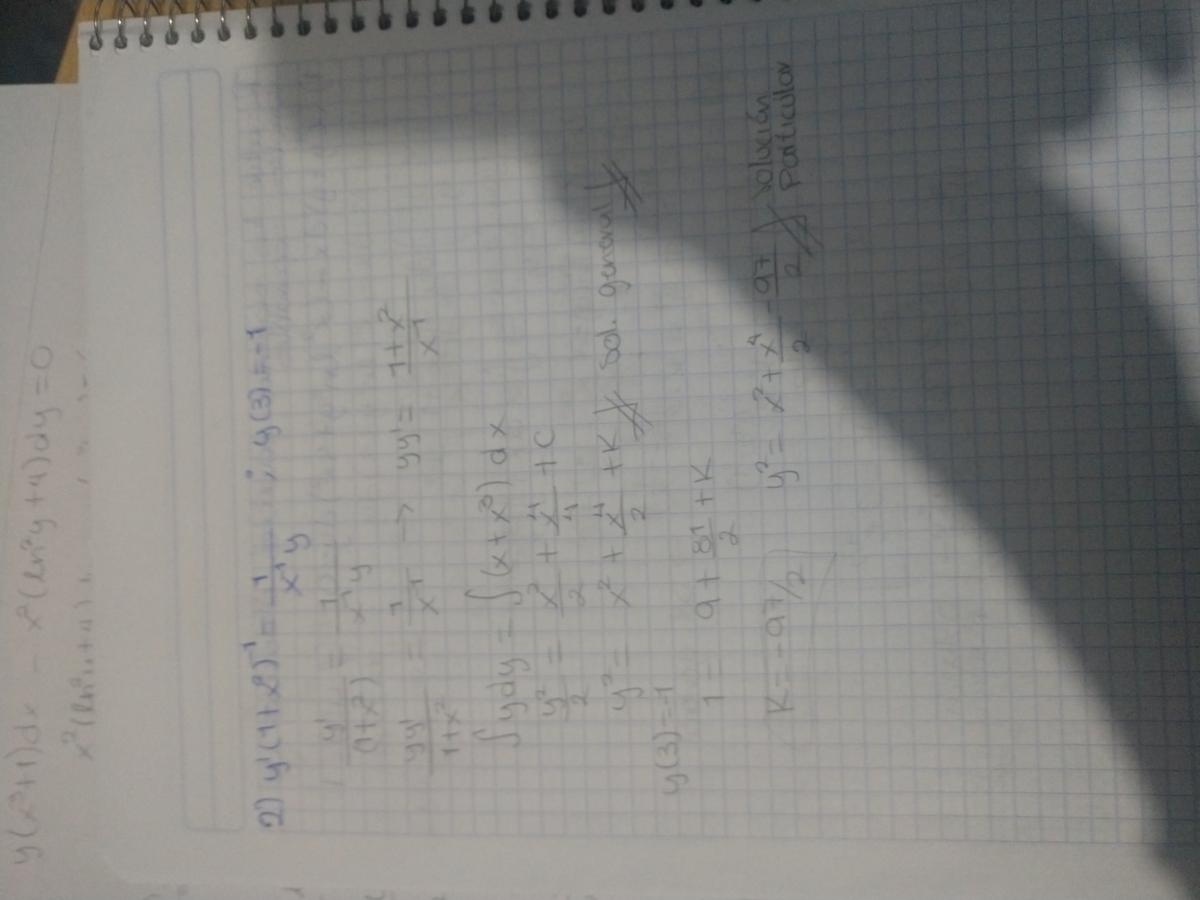 y(x³+1)dx - x²(ln²y+4)dy=0
2) y'(1+x²)⁻¹ = 1/(x⁻¹y) ; y(3)=-1
y'/(1+x²) = 1/(x⁻¹y)
yy'/(1+x²) = 1/x⁻¹ → yy' = (1+x²)/x⁻¹
∫ydy = ∫(x+x³)dx
y²/2 = x²/2 + x⁴/4 + C
y² = x² + x⁴/2 + K // Sol. general //
y(3)=-1
1 = 9 + 81/2 + K
K = -97/2 y² = x² + x⁴/2 - 97/2 // Solución Particular